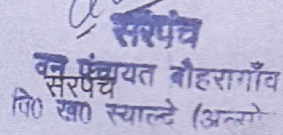 सरपंच
वन पंचायत बौहरागाँव
सरपंच
वि० ख० स्याल्दे (अल्मो